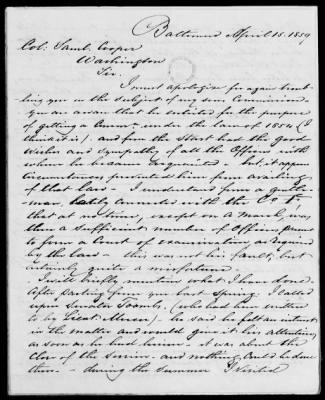 Baltimore April 15. 1859
Col: Saml. Cooper
Washington
Sir.
I must apologise for again troub-
ling you on the subject of my sons Commission.
You are aware that he enlisted for the purpose
of getting a Comn. under the law of 1854 (I
think it is) and from the Start had the good
wishes and Sympathy of all the Officers with
whom he became acquainted - but, it appears
Circumstances prevented him from availing
of that law - I understand from a gentle-
man, lately connected with the Co
that at no time, except on a March, was
there a Sufficient number of Officers present
to form a Court of examination as required
by the law - this was not his fault; but
certainly quite a misfortune.
I will briefly mention what I have done.
After parting from you last Spring, I called
upon Senator Toombs, (who had been written
to by Lieut. Mercer), he said he felt an interest
in the matter and would give it his attention,
as soon as he had leisure - it was about the
Close of the Session - and nothing could be done
then - during the summer I visited